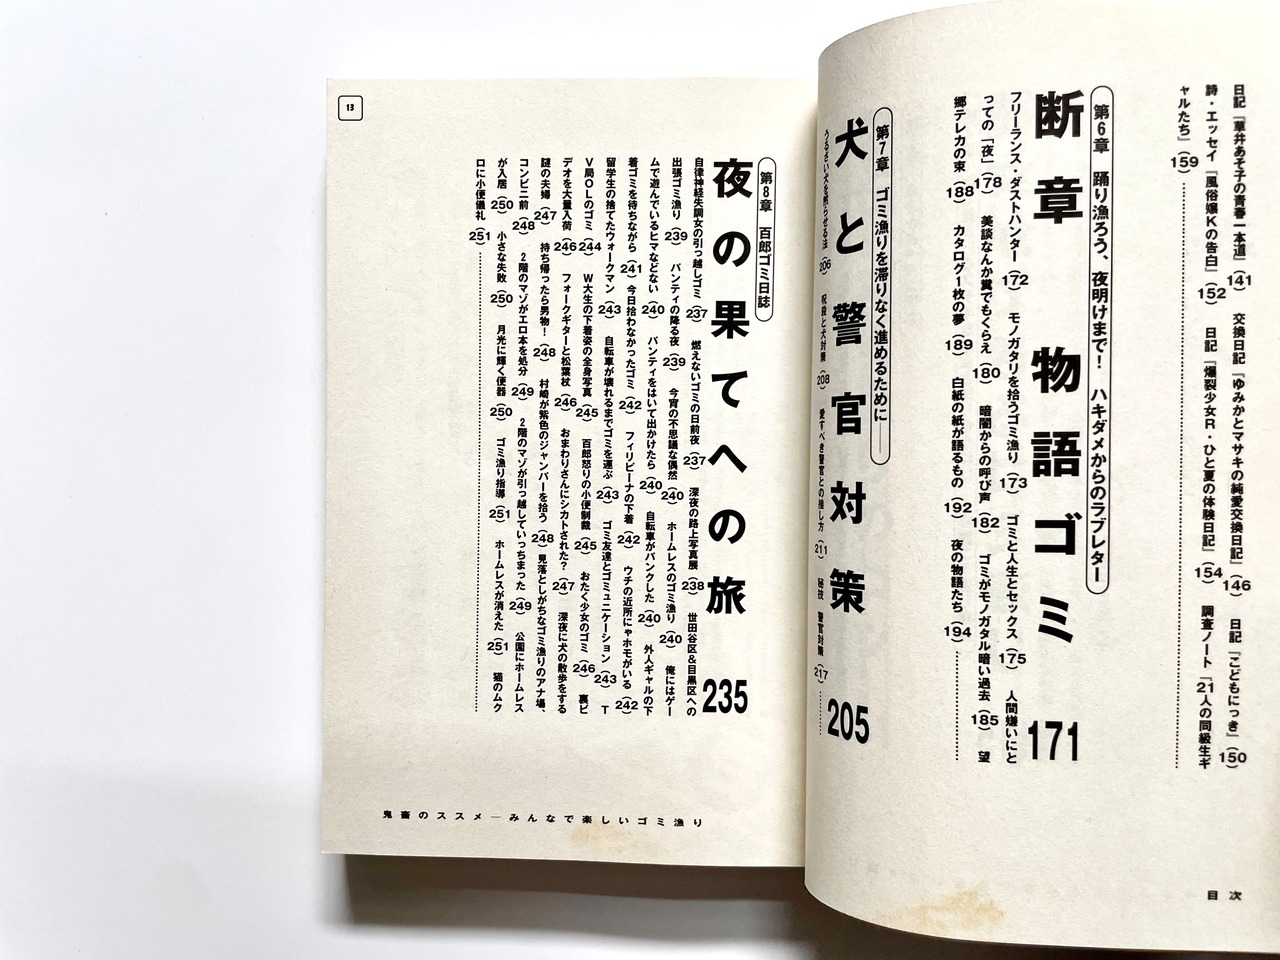 日記『草井あそ子の青春一本道』(141) 交換日記『ゆみかとマサキの純愛交換日記』(146) 日記『こどもにっき』(150)
詩・エッセイ『風俗嬢Kの告白』(152) 日記『爆裂少女R・ひと夏の体験日記』(154) 調査ノート『21人の同級生ギ
ャルたち』(159)
第6章 踊り漁ろう、夜明けまで! ハキダメからのラブレター
断章 物語ゴミ 171
フリーランス・ダストハンター(172) モノガタリを拾うゴミ漁り(173) ゴミと人生とセックス(175) 人間嫌いにと
っての「夜」(178) 美談なんか糞でもくらえ(180) 暗闇からの呼び声(182) ゴミがモノガタル暗い過去(185) 望
郷テレカの束(188) カタログ1枚の夢(189) 白紙の紙が語るもの(192) 夜の物語たち(194)
第7章 ゴミ漁りを滞りなく進めるために——
犬と警官対策 205
うるさい犬を黙らせる法(206) 呪殺と犬対策(208) 愛すべき警官との接し方(211) 秘技 警官対策(217)
目次
13
第8章 百郎ゴミ日誌
夜の果てへの旅 235
自律神経失調女の引っ越しゴミ(237) 燃えないゴミの日前夜(237) 深夜の路上写真展(238) 世田谷区&目黒区への
出張ゴミ漁り(239) パンティの降る夜(239) 今宵の不思議な偶然(240) ホームレスのゴミ漁り(240) 俺にはゲー
ムで遊んでいるヒマなどない(240) パンティをはいて出かけたら(240) 自転車がパンクした(240) 外人ギャルの下
着ゴミを待ちながら(241) 今日拾わなかったゴミ(242) フィリピーナの下着(242) ウチの近所にゃホモがいる(242)
留学生の捨てたウォークマン(243) 自転車が壊れるまでゴミを運ぶ(243) ゴミ友達とゴミュニケーション(243) T
V局OLのゴミ(244) W大生の下着姿の全身写真(245) 百郎怒りの小便制裁(245) おたく少女のゴミ(246) 裏ビ
デオを大量入荷(246) フォークギターと松葉杖(246) おまわりさんにシカトされた?(247) 深夜に犬の散歩をする
謎の夫婦(247) 持ち帰ったら男物!(248) 村崎が紫色のジャンパーを拾う(248) 見落としがちなゴミ漁りのアナ場、
コンビニ前(248) 2階のマゾがエロ本を処分(249) 2階のマゾが引っ越していっちまった(249) 公園にホームレス
が入居(250) 小さな失敗(250) 月光に輝く便器(250) ゴミ漁り指導(251) ホームレスが消えた(251) 猫のムク
ロに小便儀礼(251)
鬼畜のススメ—みんなで楽しいゴミ漁り